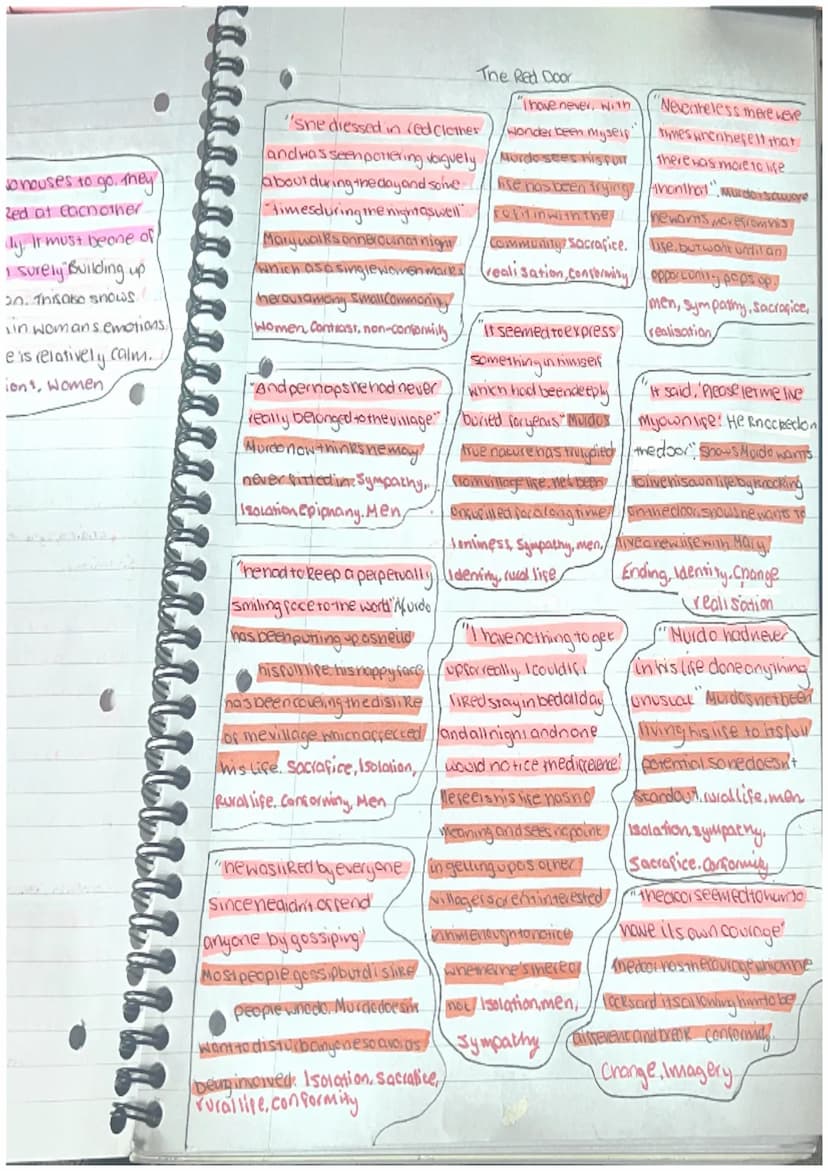 wo houses to go. They
zed at each other
ly. It must be one of
surely" Building up
on. This also shows
in womans emotions
e is relatively calm.
ions, women
The Red Door
"She dressed in red clothes
and was seen pottering vaguely
about during the day and some-
times during the night as well"
Mary walks on her own at night
which as a single women marks
her out among small community
Women, Contrast, non-conformity
"I have never, with
wonder been myself"
Murdo sees his full
life has been trying
to fit in with the
community. Sacrafice.
realisation, Conformity
"Nevertheless there were
times when he felt that
there was more to life
than that", Murdo is aware
he wants more from his
life, but wont until an
opportunity pops up.
men, sympathy, sacrafice,
realisation
"And perhaps he had never
really belonged to the village"
Murdo now thinks he may
never fitted in. Sympathy,
Isolation, Epiphany. Men
"It seemed to express
something in himself
which had been deeply
buried for years" Murdos
true nature has truly died
from village life. Hes been
unfulfilled for a long time
lonliness, Sympathy, men,
Identity, rural life
"It said, 'Please let me live
my own life'. He knocked on
the door", Shows Murdo wants
to live his own life by knocking
on the door, he wants to
live a new life with Mary
Ending, Identity, Change
realisation
"he had to keep a perpetually
smiling face to the world" Murdo
has been putting up a shield
his full life. his happy face
has been covering the dislike
of the village which affected
his life. Sacrafice, Isolation,
Rural life, Conforming, Men
"I have nothing to get
up for really. I could if I
liked stay in bed all day
and all night and none
would notice the difference"
He feels his life has no
meaning and sees no point
in getting up as other
villagers aren't interested
in him enough to notice
whether he's there or
not Isolation, men,
Sympathy
"Murdo had never
in his life done anything
unusual" Murdos not been
living his life to its full
potential so he doesn't
standout, rural life, men
Isolation, sympathy,
Sacrafice. Conformity
"he was liked by everyone
since he didnt offend
anyone by gossiping"
Most people gossip but dislike
people who do. Murdo doesnt
want to disturb anyone so avoids
being involved. Isolation, Sacrafice,
rural life, conformity
"The door seemed to
have its own courage"
The door has the courage which he
lacks and its allowing him to be
different and break conformity.
Change, Imagery